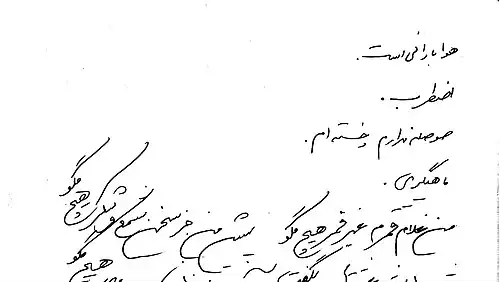 هوا بارانی است.
اضطراب.
حوصله ندارم و خسته ام.
ماهیگیری.
من غلام قمرم غیر قمر هیچ مگو
پیش من جز سخن شمع و شکر هیچ مگو
هیچ مگو